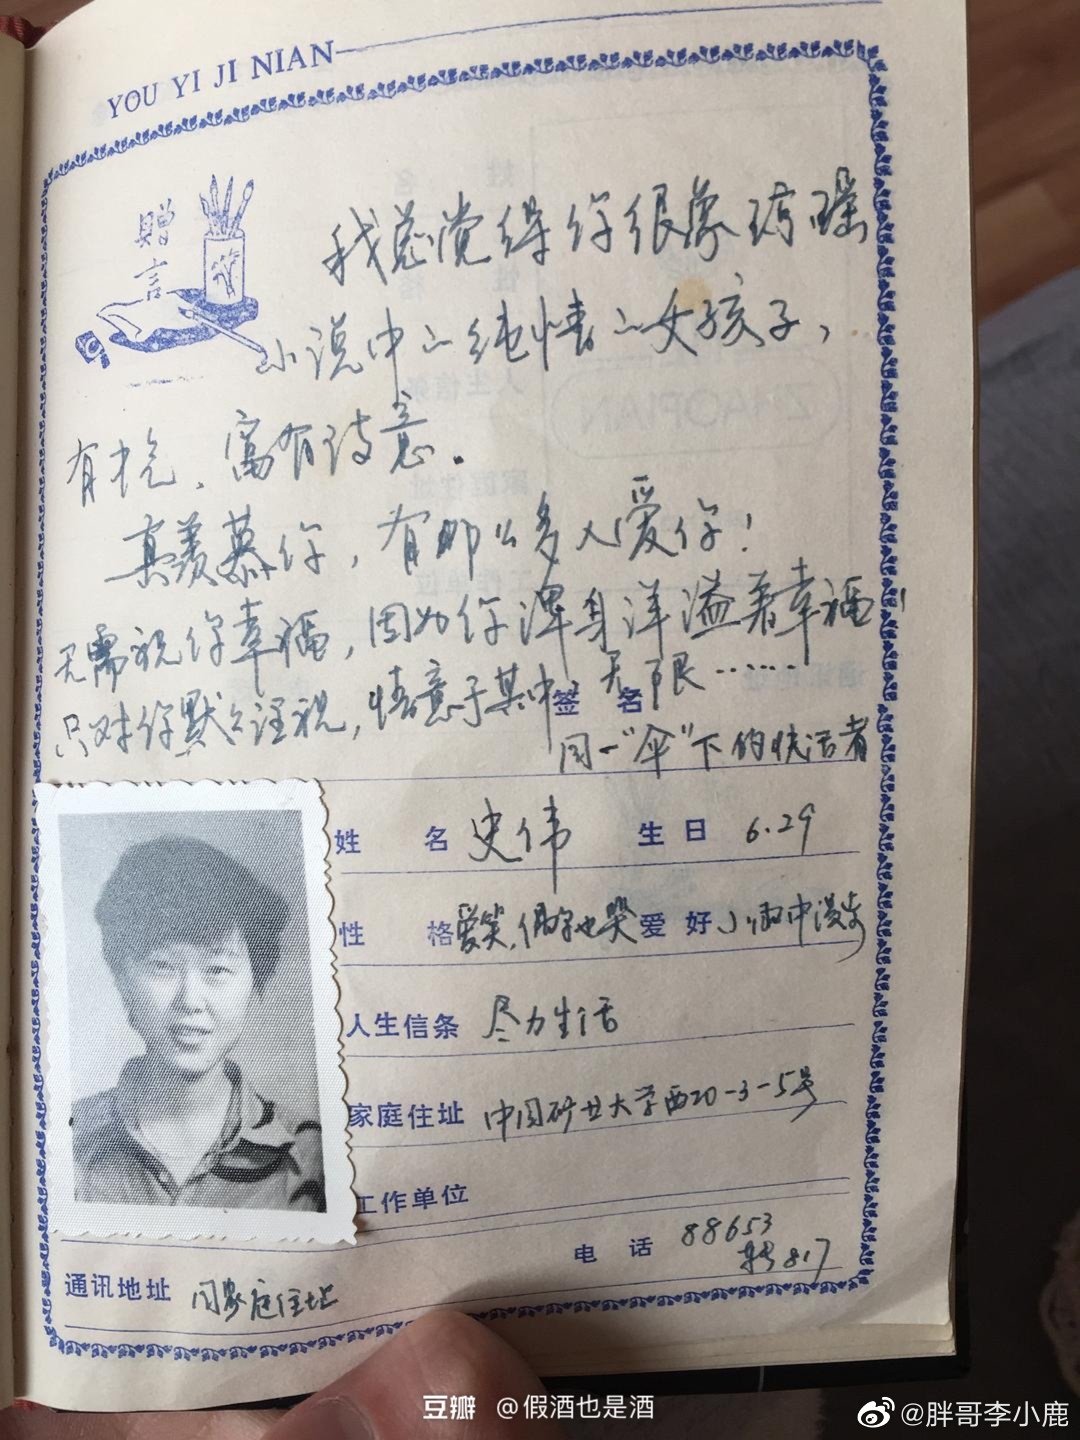 YOU YI JI NIAN
赠言
我总觉得你很像琼瑶
小说中的纯情的女孩子，
有才气、富有诗意。
真羡慕你，有那么多人爱你！
无需祝你幸福，因为你浑身洋溢着幸福！
只对你默默注视，情意于其中，无限……
签 名
同一“伞”下的快活者
姓 名 史伟 生日 6.29
性 格 爱笑，偶尔也哭 爱好 小雨中漫步
人生信条 尽力生活
家庭住址 中国矿业大学西20-3-5号
工作单位
电 话 88653
转817
通讯地址 同家庭住址
ZHAOPIAN
豆瓣 @假酒也是酒
@胖哥李小鹿